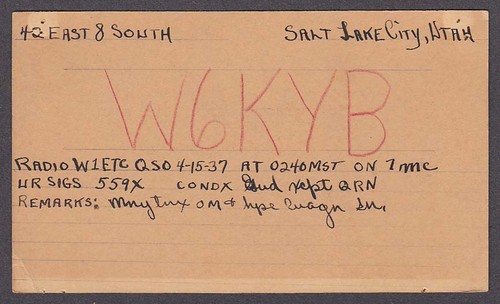 42 EAST 8 SOUTH SALT LAKE CITY, UTAH
W6KYB
RADIO W1ETC QSO 4-15-37 AT 0240 MST ON 7 MC
UR SIGS 559X CONDX Gud xcpt QRN
REMARKS: Mny tnx OM + hpe cuagn